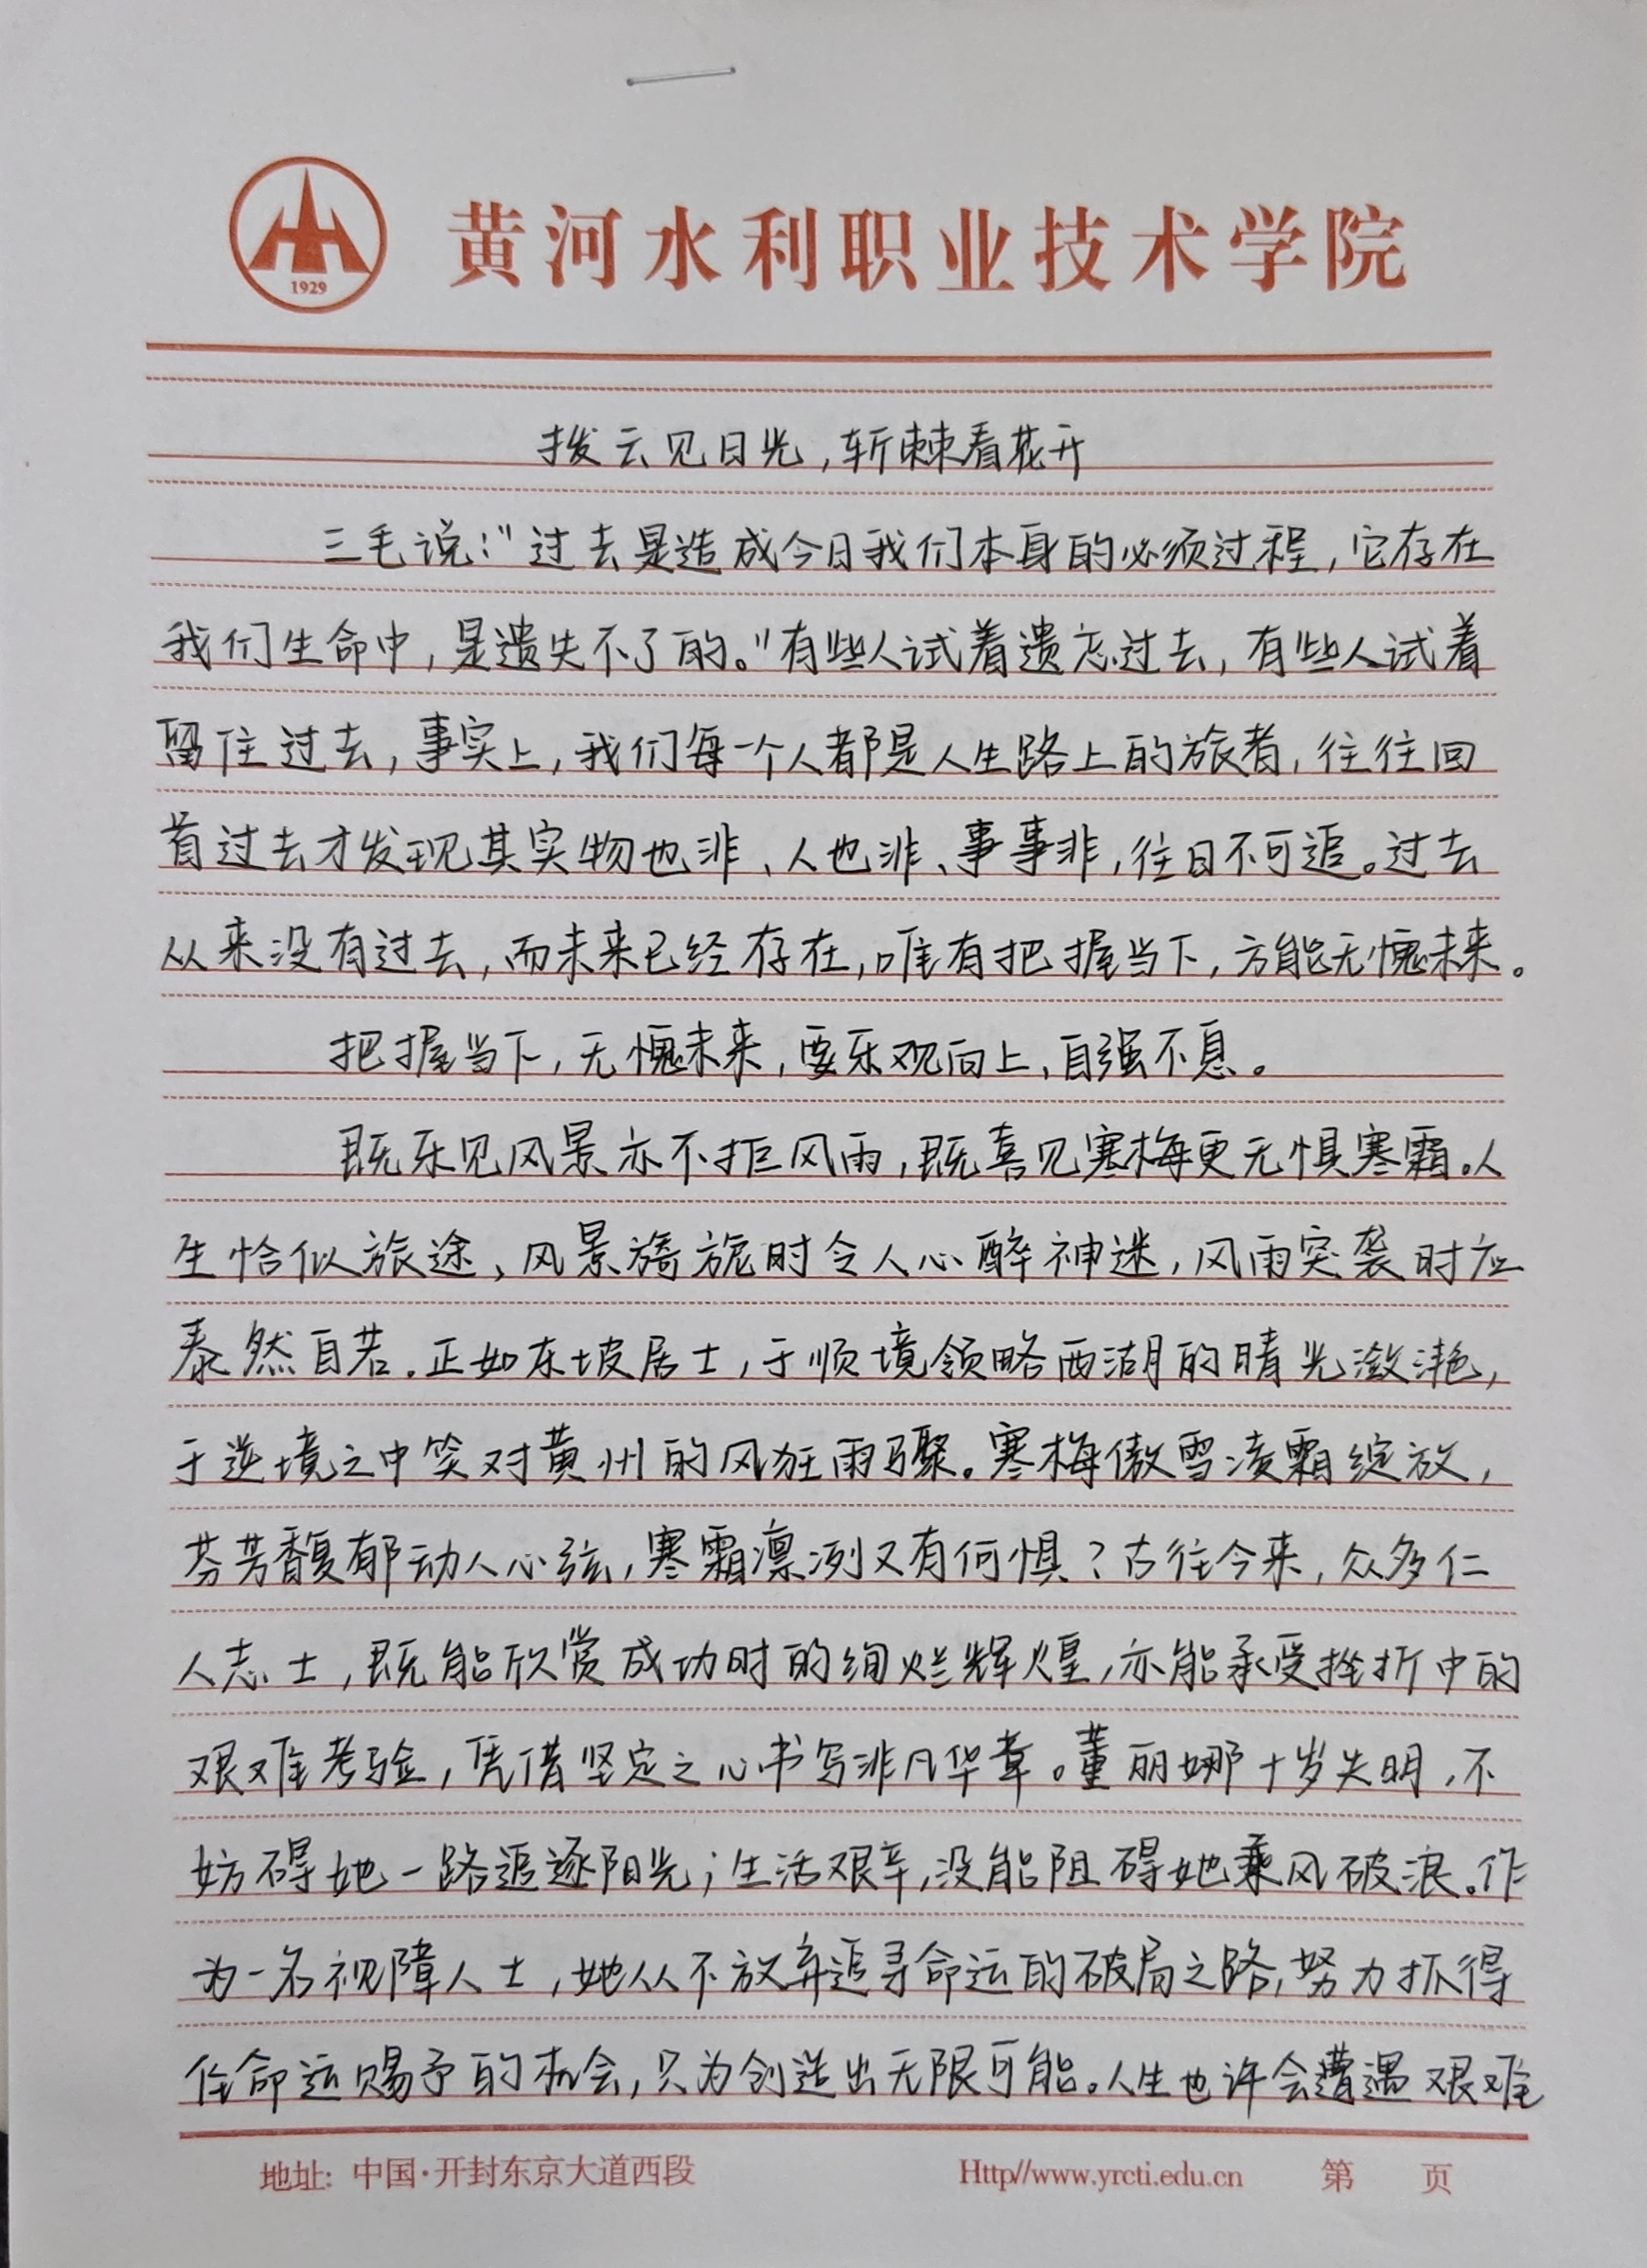 1929
黄河水利职业技术学院
拨云见日光,斩棘看花开
三毛说:"过去是造成今日我们本身的必须过程,它存在
我们生命中,是遗失不了的。"有些人试着遗忘过去,有些人试着
留住过去,事实上,我们每一个人都是人生路上的旅者,往往回
首过去才发现其实物也非、人也非、事事非,往日不可追。过去
从来没有过去,而未来已经存在,唯有把握当下,方能无愧未来。
把握当下,无愧未来,要乐观向上、自强不息。
既乐见风景亦不拒风雨,既喜见寒梅更无惧寒霜。人
生恰似旅途、风景旖旎时令人心醉神迷,风雨突袭时应
泰然自若.正如东坡居士,于顺境领略西湖的晴光潋滟,
于逆境之中笑对黄州的风狂雨骤。寒梅傲雪凌霜绽放,
芬芳馥郁动人心弦,寒霜凛冽又有何惧?古往今来,众多仁
人志士,既能欣赏成功时的绚烂辉煌,亦能承受挫折中的
艰难考验,凭借坚定之心书写非凡华章。董丽娜十岁失明,不
妨碍她一路追逐阳光;生活艰辛,没能阻碍她乘风破浪。作
为一名视障人士,她从不放弃追寻命运的破局之路,努力抓得
住命运赐予的机会,只为创造出无限可能。人生也许会遭遇艰难
地址: 中国·开封东京大道西段 Http//www.yrcti.edu.cn 第 页